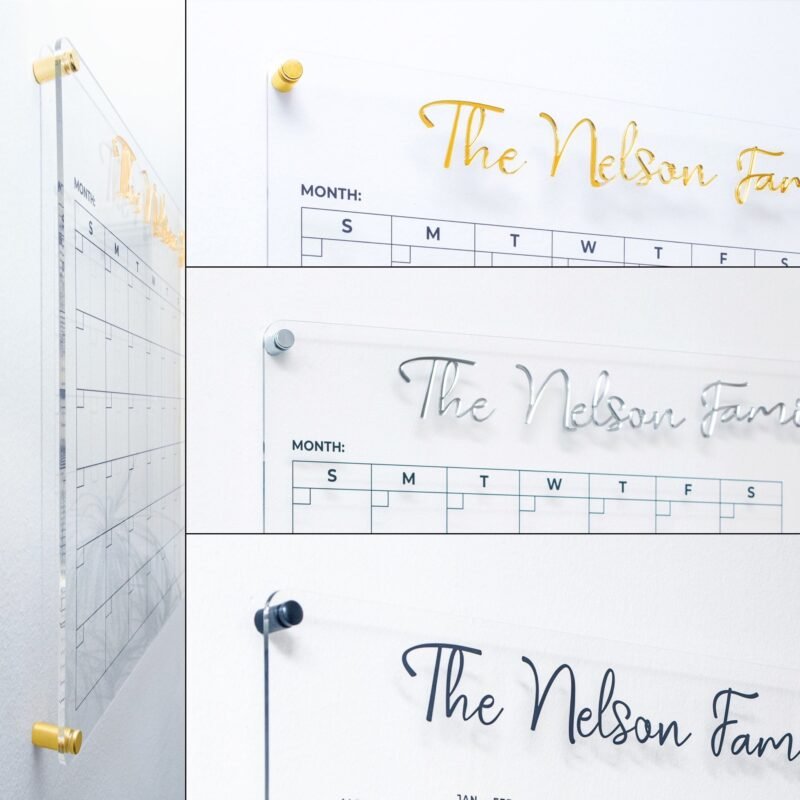 MONTH:
S M T W
The Nelson
MONTH:
S M T W T F S
The Nelson Fam
MONTH:
S M T W T F S
The Nelson Fami
The Nelson Fam
JAN